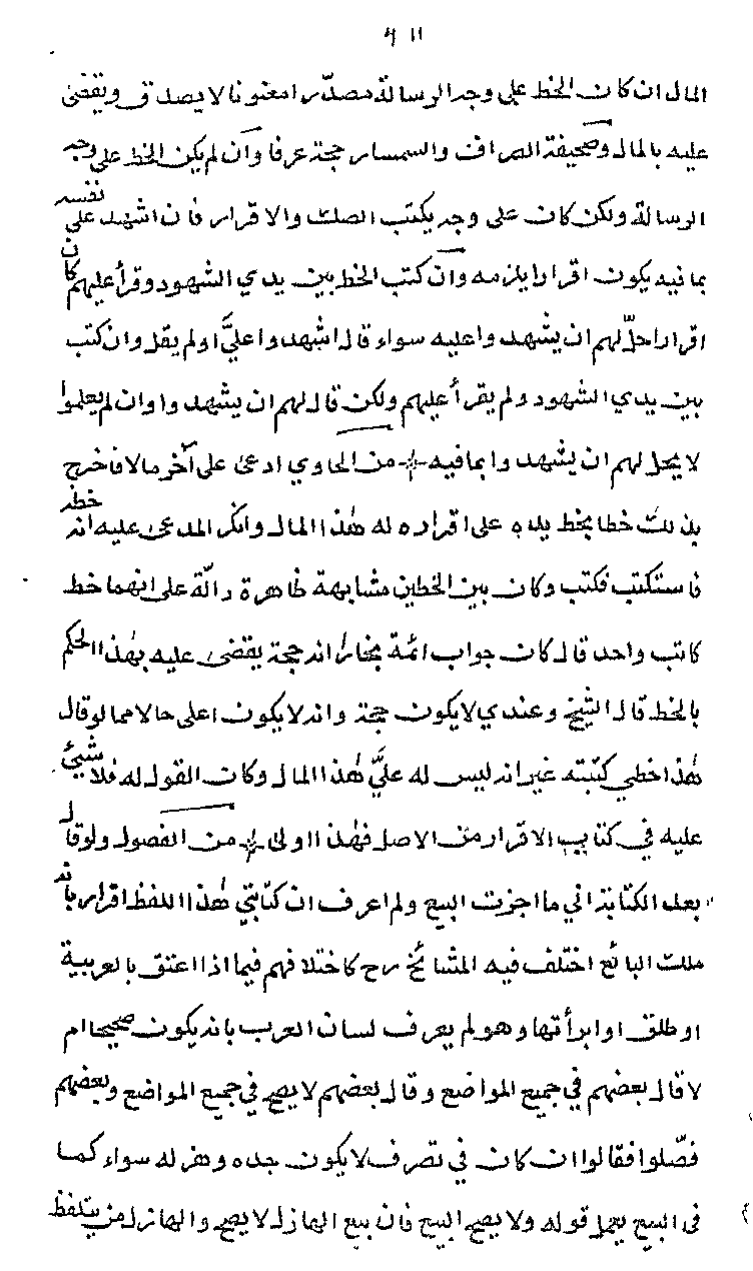 ۴۱۱
المال ان كان الخط على وجه الرسالة مصدّرا معنونا لا يصدق ويقضى
عليه بالمال وصحيفة الصراف والسمسار حجة عرفا وان لم يكن الخط على وجه
الرسالة ولكن كان على وجه يكتب الصك والاقرار فان اشهد على نفسه
بما فيه يكون اقرارا يلزمه وان كتب الخط بين يدي الشهود وقرأ عليهم كان
اقرارا حلّ لهم ان يشهدوا عليه سواء قال اشهدوا عليَّ او لم يقل وان كتب
بين يدي الشهود ولم يقرأ عليهم ولكن قال لهم ان يشهدوا وان لم يعلموا
لا يحل لهم ان يشهدوا بما فيه من الحاوي ادعى على آخر مالا فاخرج
بذلك خطا بخط يده على اقراره له هٰذا المال وانكر المدعى عليه انه خطه
فاستكتب فكتب وكان بين الخطين مشابهة ظاهرة دالّة على انهما خط
كاتب واحد قال كان جواب ائمة بخارا انه حجة يقضى عليه بهٰذا الحكم
بالخط قال الشيخ وعندي لا يكون حجة وانه لا يكون اعلى حالا مما لو قال
هٰذا خطي كتبته غير انه ليس له عليَّ هٰذا المال وكان القول له فلا شيئ
عليه في كتاب الاقرار من الاصل فهٰذا اولى من الفصول ولو قال
بعد الكتابة اني ما اجزت البيع ولم اعرف ان كتابتي هٰذا اللفظ اقرار بانه
ملك البائع اختلف فيه المشائخ رح كاختلافهم فيما اذا اعتق بالعربية
او طلق او ابرأتها وهو لم يعرف لسان العرب بانه يكون صحيحا ام
لا قال بعضهم في جميع المواضع وقال بعضهم لا يصح في جميع المواضع وبعضهم
فصّلوا فقالوا ان كان في تصرف لا يكون جده وهزله سواء كما
في البيع يعمل قوله ولا يصح البيع فان بيع الهازل لا يصح والهازل من يتلفظ